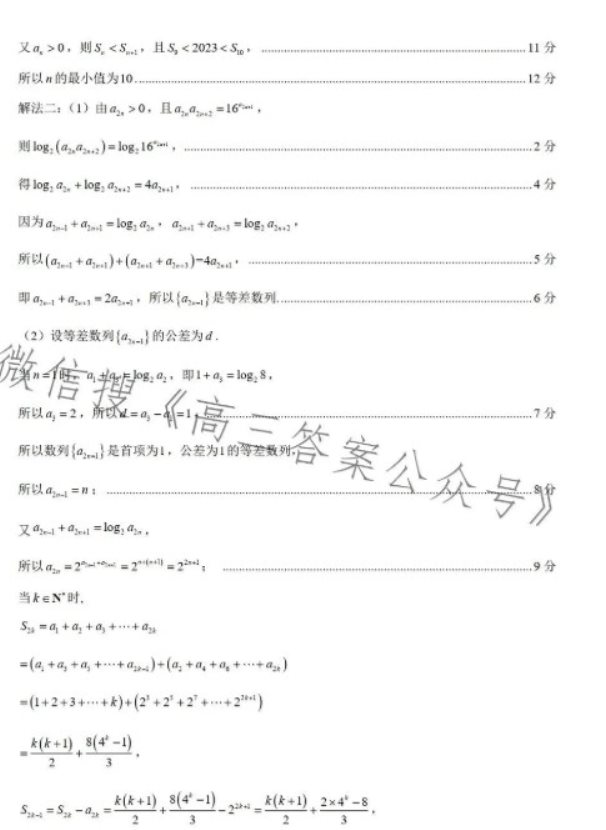 又 aₙ > 0，则 Sₙ < Sₙ₊₁，且 S₉ < 2023 < S₁₀，……11 分
所以 n 的最小值为10……12 分
解法二：（1）由 a₂ₙ > 0，且 a₂ₙa₂ₙ₊₂ = 16^(a₂ₙ₊₁)，
则 log₂(a₂ₙa₂ₙ₊₂) = log₂16^(a₂ₙ₊₁)，……2 分
得 log₂ a₂ₙ + log₂ a₂ₙ₊₂ = 4a₂ₙ₊₁，……4 分
因为 a₂ₙ₋₁ + a₂ₙ₊₁ = log₂ a₂ₙ，a₂ₙ₊₁ + a₂ₙ₊₃ = log₂ a₂ₙ₊₂，
所以 (a₂ₙ₋₁ + a₂ₙ₊₁) + (a₂ₙ₊₁ + a₂ₙ₊₃) = 4a₂ₙ₊₁，……5 分
即 a₂ₙ₋₁ + a₂ₙ₊₃ = 2a₂ₙ₊₁，所以{a₂ₙ₋₁}是等差数列……6 分
（2）设等差数列{a₂ₙ₋₁}的公差为 d .
当 n = 1时，a₁ + a₃ = log₂ a₂，即1 + a₃ = log₂ 8，
所以 a₃ = 2，所以 d = a₃ − a₁ = 1，……7 分
所以数列{a₂ₙ₋₁}是首项为1，公差为1的等差数列，
所以 a₂ₙ₋₁ = n；……8 分
又 a₂ₙ₋₁ + a₂ₙ₊₁ = log₂ a₂ₙ，
所以 a₂ₙ = 2^(a₂ₙ₋₁+a₂ₙ₊₁) = 2^(n+(n+1)) = 2^(2n+1)；……9 分
当 k ∈ N* 时，
S₂ₖ = a₁ + a₂ + a₃ + ⋯ + a₂ₖ
= (a₁ + a₃ + a₅ + ⋯ + a₂ₖ₋₁) + (a₂ + a₄ + a₆ + ⋯ + a₂ₖ)
= (1 + 2 + 3 + ⋯ + k) + (2³ + 2⁵ + 2⁷ + ⋯ + 2^(2k+1))
= k(k+1)/2 + 8(4ᵏ − 1)/3，
S₂ₖ₋₁ = S₂ₖ − a₂ₖ = k(k+1)/2 + 8(4ᵏ − 1)/3 − 2^(2k+1) = k(k+1)/2 + (2×4ᵏ − 8)/3，
微信搜《高三答案公众号》